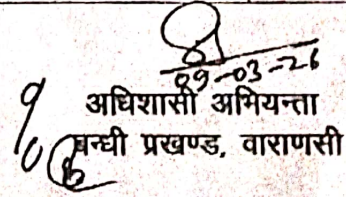 09-03-26
अधिशासी अभियन्ता
बन्धी प्रखण्ड, वाराणसी